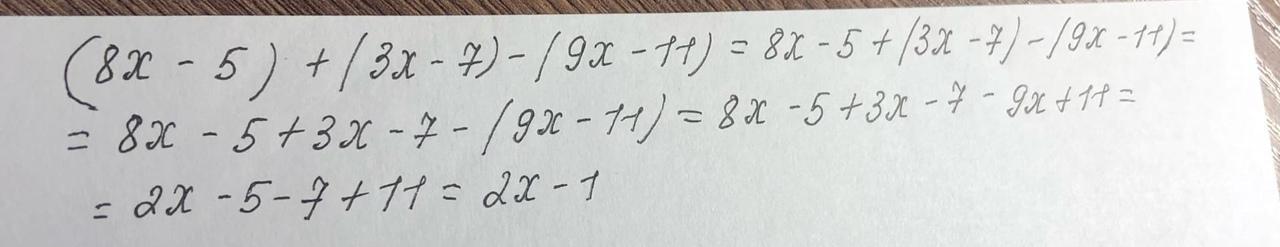 (8x - 5) + (3x - 7) - (9x - 11) = 8x - 5 + (3x - 7) - (9x - 11) =
= 8x - 5 + 3x - 7 - (9x - 11) = 8x - 5 + 3x - 7 - 9x + 11 =
= 2x - 5 - 7 + 11 = 2x - 1